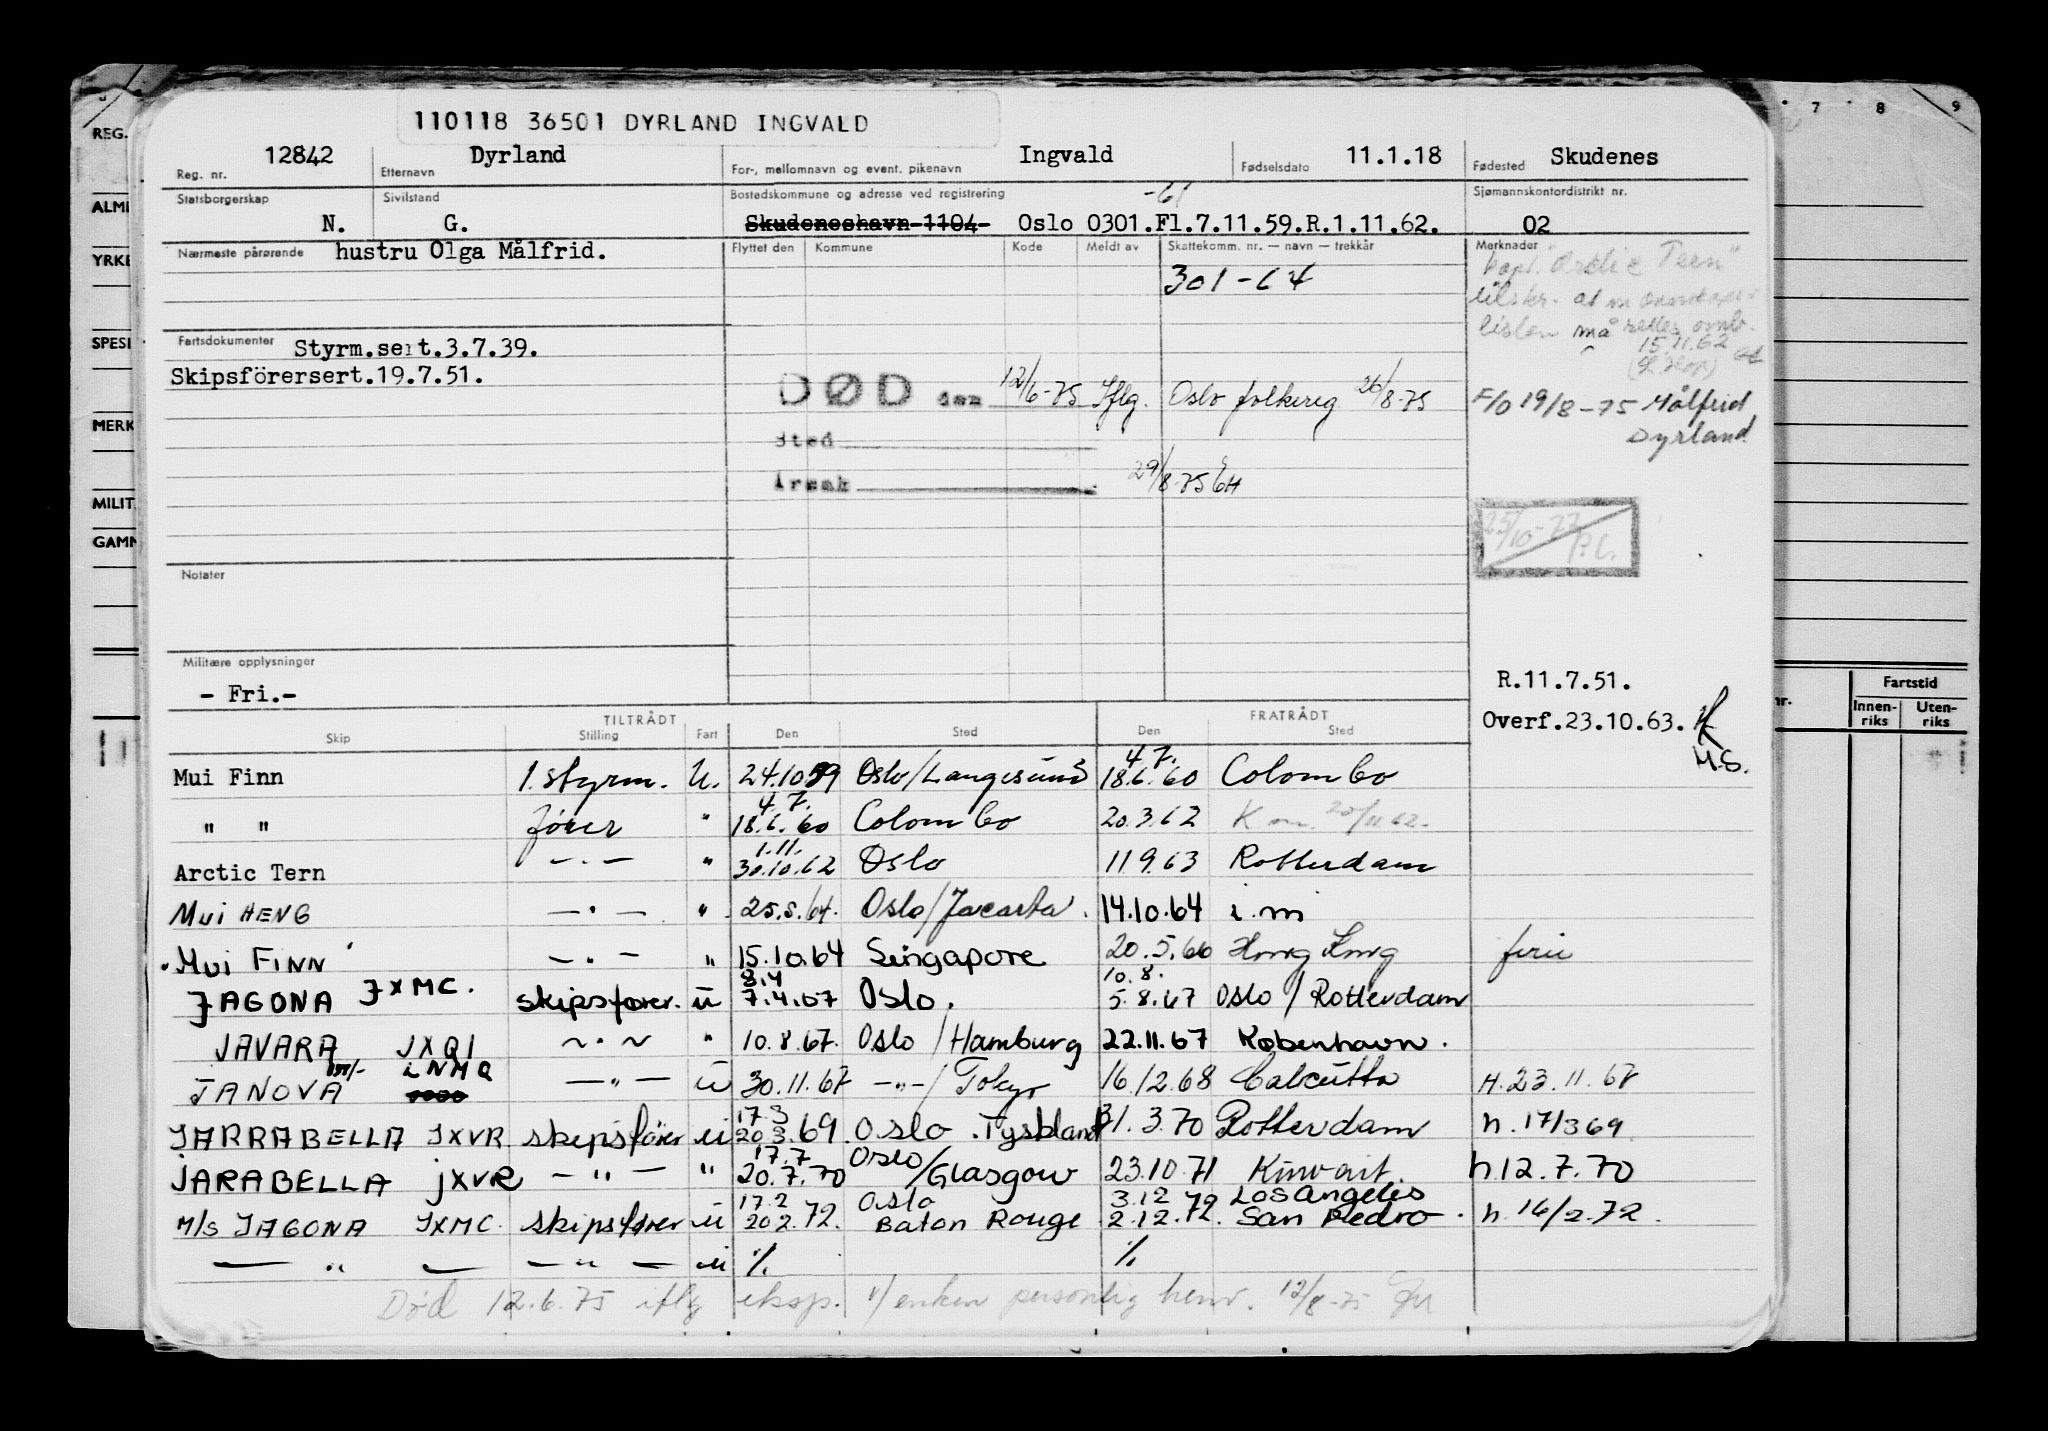 110118 36501 DYRLAND INGVALD
7 8 9
REG.
12842 Dyrland Ingvald 11.1.18 Skudenes
Reg. nr. Etternavn For-, mellomnavn og event. pikenavn Fødselsdato Fødested
Statsborgerskap Sivilstand Bostedskommune og adresse ved registrering -61 Sjømannskontordistrikt nr.
ALM
N. G. Skudeneshavn 1104- Oslo 0301.Fl.7.11.59.R.1.11.62. 02
Nærmeste pårørende hustru Olga Målfrid. Flyttet den Kommune Kode Meldt av Skattekomm. nr. — navn — trekkår Merknader
YRKE
301-64
Kapt. "Arctic Tern"
listen må rettes omb.
15.11.62
SPESI
Fartsdokumenter Styrm.sert.3.7.39.
Skipsförersert.19.7.51.
DØD den 12/6-75 Iflg. Oslo folkereg 26/8-75
F/O 19/8-75 Målfrid
Dyrland
MERK
Sted
Årsak 29/8-75 EH
MILIT.
GAMM
25/10-77
Notater
Militære opplysninger
- Fri.-
R.11.7.51.
Overf.23.10.63.
M.S.
nr. Fartstid
Innenriks Utenriks
TILTRÅDT FRATRÅDT
Skip Stilling Fart Den Sted Den Sted
Mui Finn 1. styrm. U. 24.10 59 Oslo/Langesund 4.7. 18.6.60 Colombo
" " fører " 4.7. 18.6.60 Colombo 20.3.62 K m. 20/11.62.
Arctic Tern —.— " 1.11. 30.10.62 Oslo 11 9.63 Rotterdam
MUI HENG —.— " 25.5.64. Oslo/Jacarta. 14.10.64 i.m
MUI FINN —.— " 15.10.64 Singapore 20.5.66 Hong Kong ferie
JAGONA JXMC. skipsfører. U 8.4 7.4.67 Oslo. 10.8. 5.8.67 Oslo / Rotterdam
JAVARA JXQI ~.~ " 10.8.67. Oslo /Hamburg 22.11.67 København.
JANOVA m/- LNMQ —"— U 30.11.67 —"—/ Tokyo 16/2.68 Calcutta H.23.11.67
JARRABELLA JXVR skipsfører U 17.3 20.3.69. Oslo. Tyskland 31.3.70 Rotterdam h.17/3 69.
JARABELLA JXVR —"— " 17.7 20.7.70 Oslo/Glasgow 23.10.71 Kuwait. h 12.7.70
M/S JAGONA JXMC. skipsfører U 17.2 20.2.72. Oslo Baton Rouge 3.12 2.12.72. Los Angeles San Pedro. h.16/2.72.
— " — — " — U % %
Død 12.6.75 iflg eksp. v/ enken personlig henv. 12/8-75